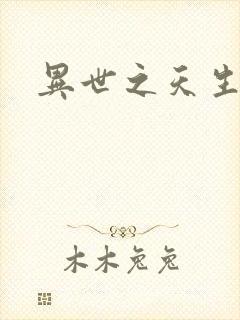 異世之天生
木木兔兔